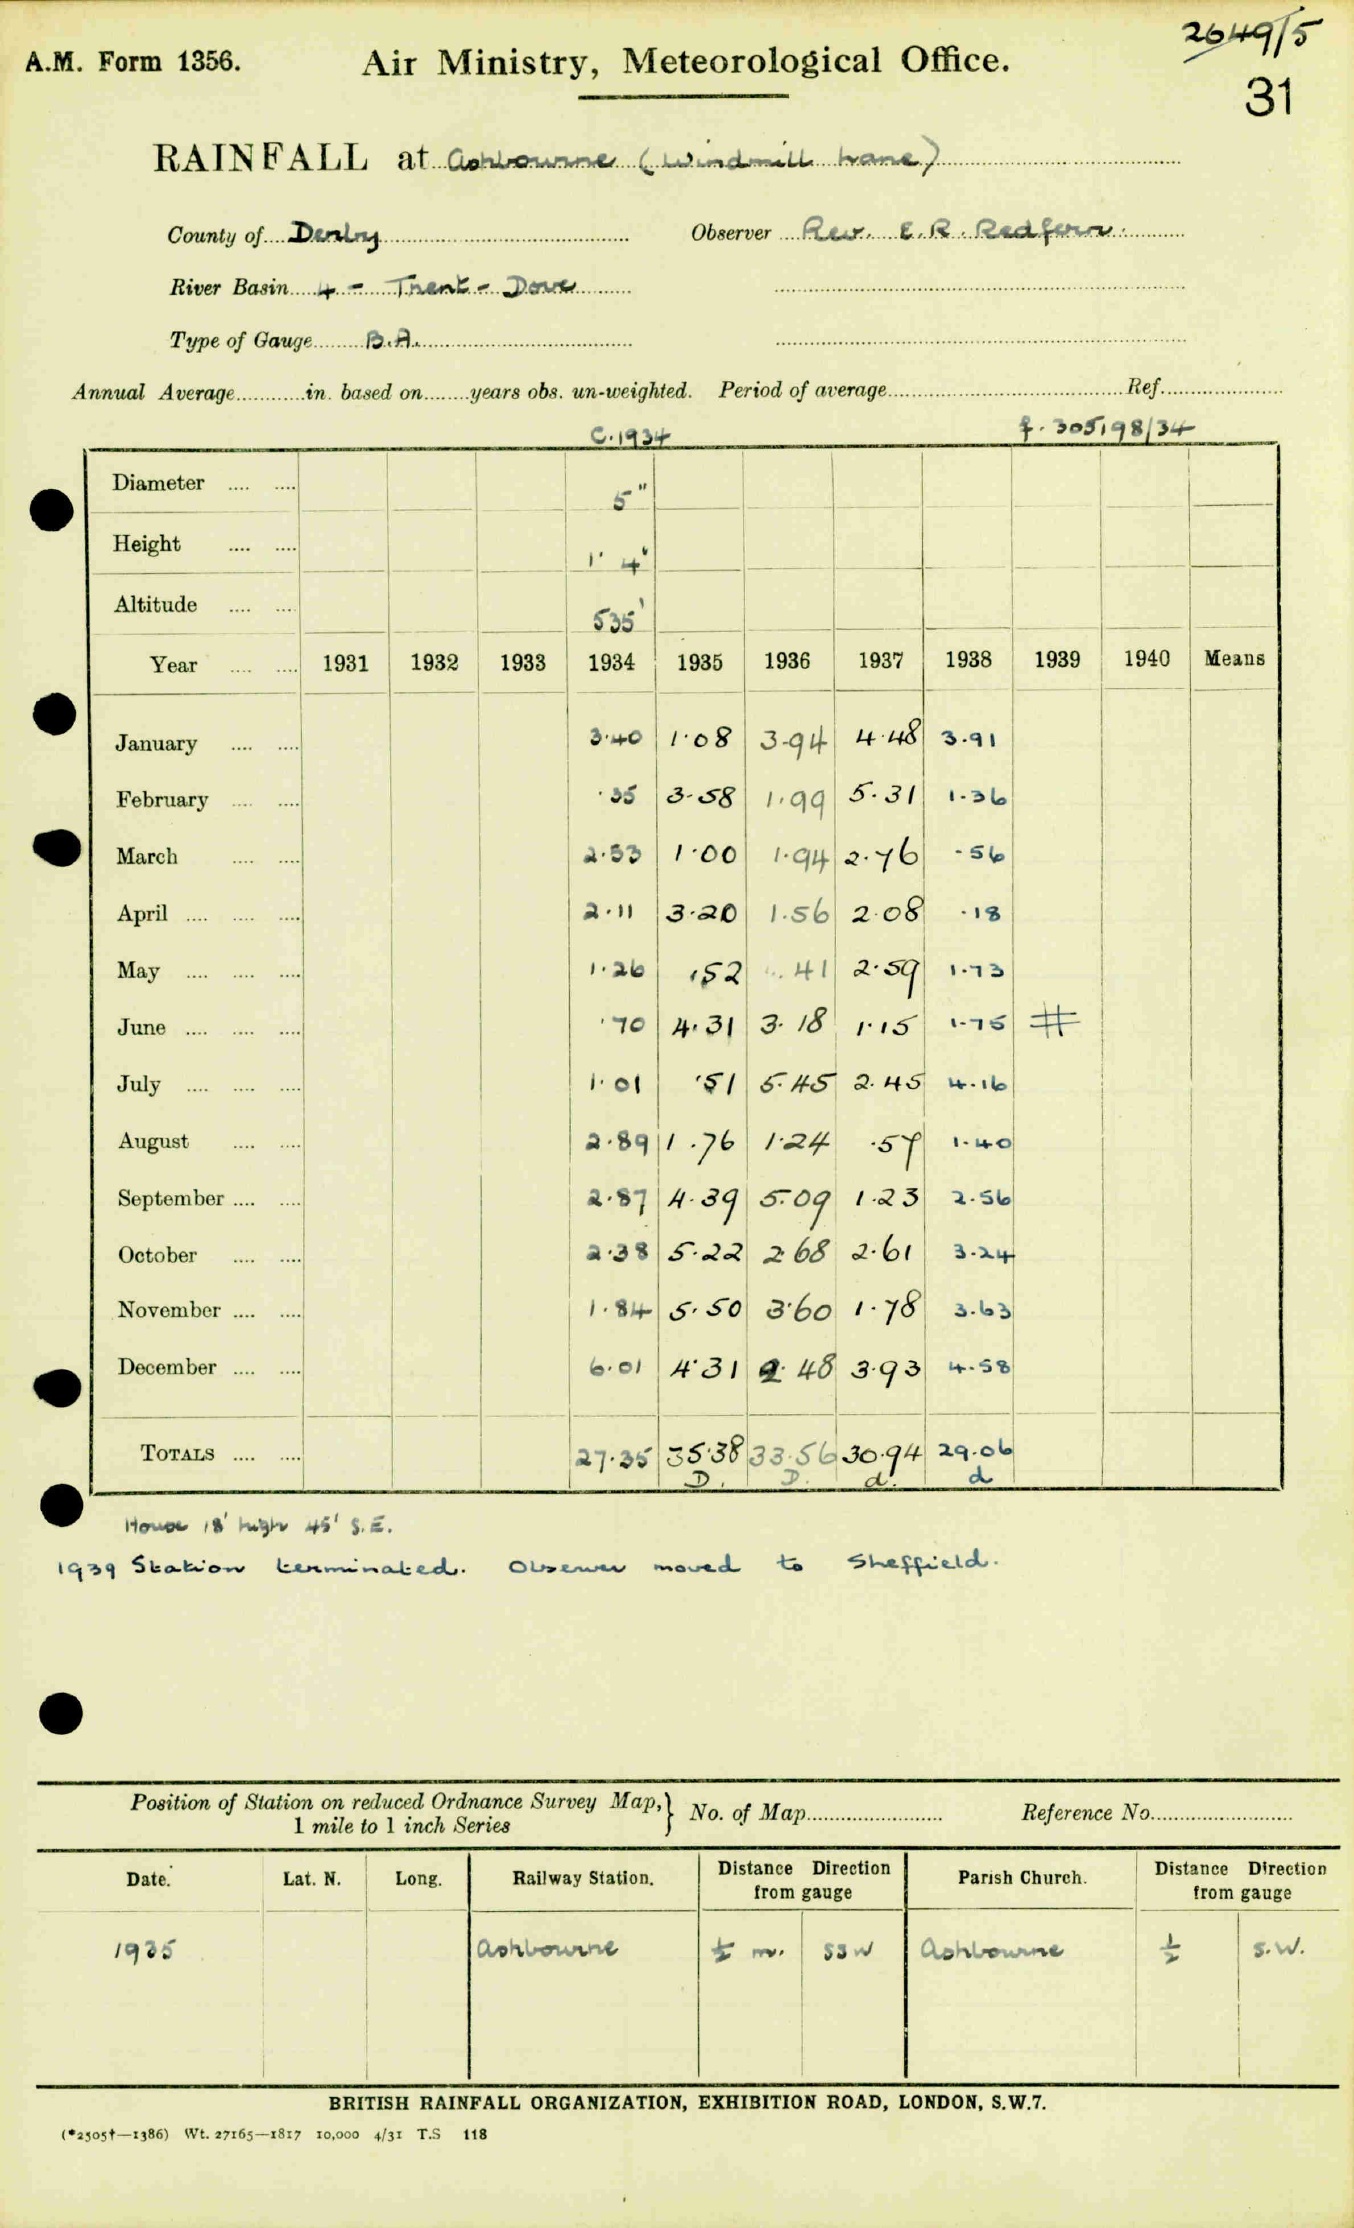 2649/5
A.M. Form 1356. Air Ministry, Meteorological Office.
31
RAINFALL at Ashbourne (Windmill Lane)
County of Derby Observer Rev. E. R. Redfern.
River Basin 4 - Trent - Dove
Type of Gauge B.A.
Annual Average in. based on years obs. un-weighted. Period of average Ref.
C.1934 f. 305198/34
Diameter 5"
Height 1' 4"
Altitude 535'
Year 1931 1932 1933 1934 1935 1936 1937 1938 1939 1940 Means
January 3.40 1.08 3.94 4.48 3.91
February .35 3.58 1.99 5.31 1.36
March 2.53 1.00 1.94 2.76 .56
April 2.11 3.20 1.56 2.08 .18
May 1.26 .52 .41 2.59 1.73
June .70 4.31 3.18 1.15 1.75 #
July 1.01 .51 5.45 2.45 4.16
August 2.89 1.76 1.24 .57 1.40
September 2.87 4.39 5.09 1.23 2.56
October 2.38 5.22 2.68 2.61 3.24
November 1.84 5.50 3.60 1.78 3.63
December 6.01 4.31 2.48 3.93 4.58
TOTALS 27.35 35.38 33.56 30.94 29.06
D. D. d. d
House 18' high 45' S.E.
1939 Station terminated. Observer moved to Sheffield.
Position of Station on reduced Ordnance Survey Map, } No. of Map Reference No.
1 mile to 1 inch Series
Date. Lat. N. Long. Railway Station. Distance Direction from gauge Parish Church. Distance Direction from gauge
1935 Ashbourne ½ m. SSW Ashbourne ½ S.W.
BRITISH RAINFALL ORGANIZATION, EXHIBITION ROAD, LONDON, S.W.7.
(*2505†—1386) Wt. 27165—1817 10,000 4/31 T.S 118